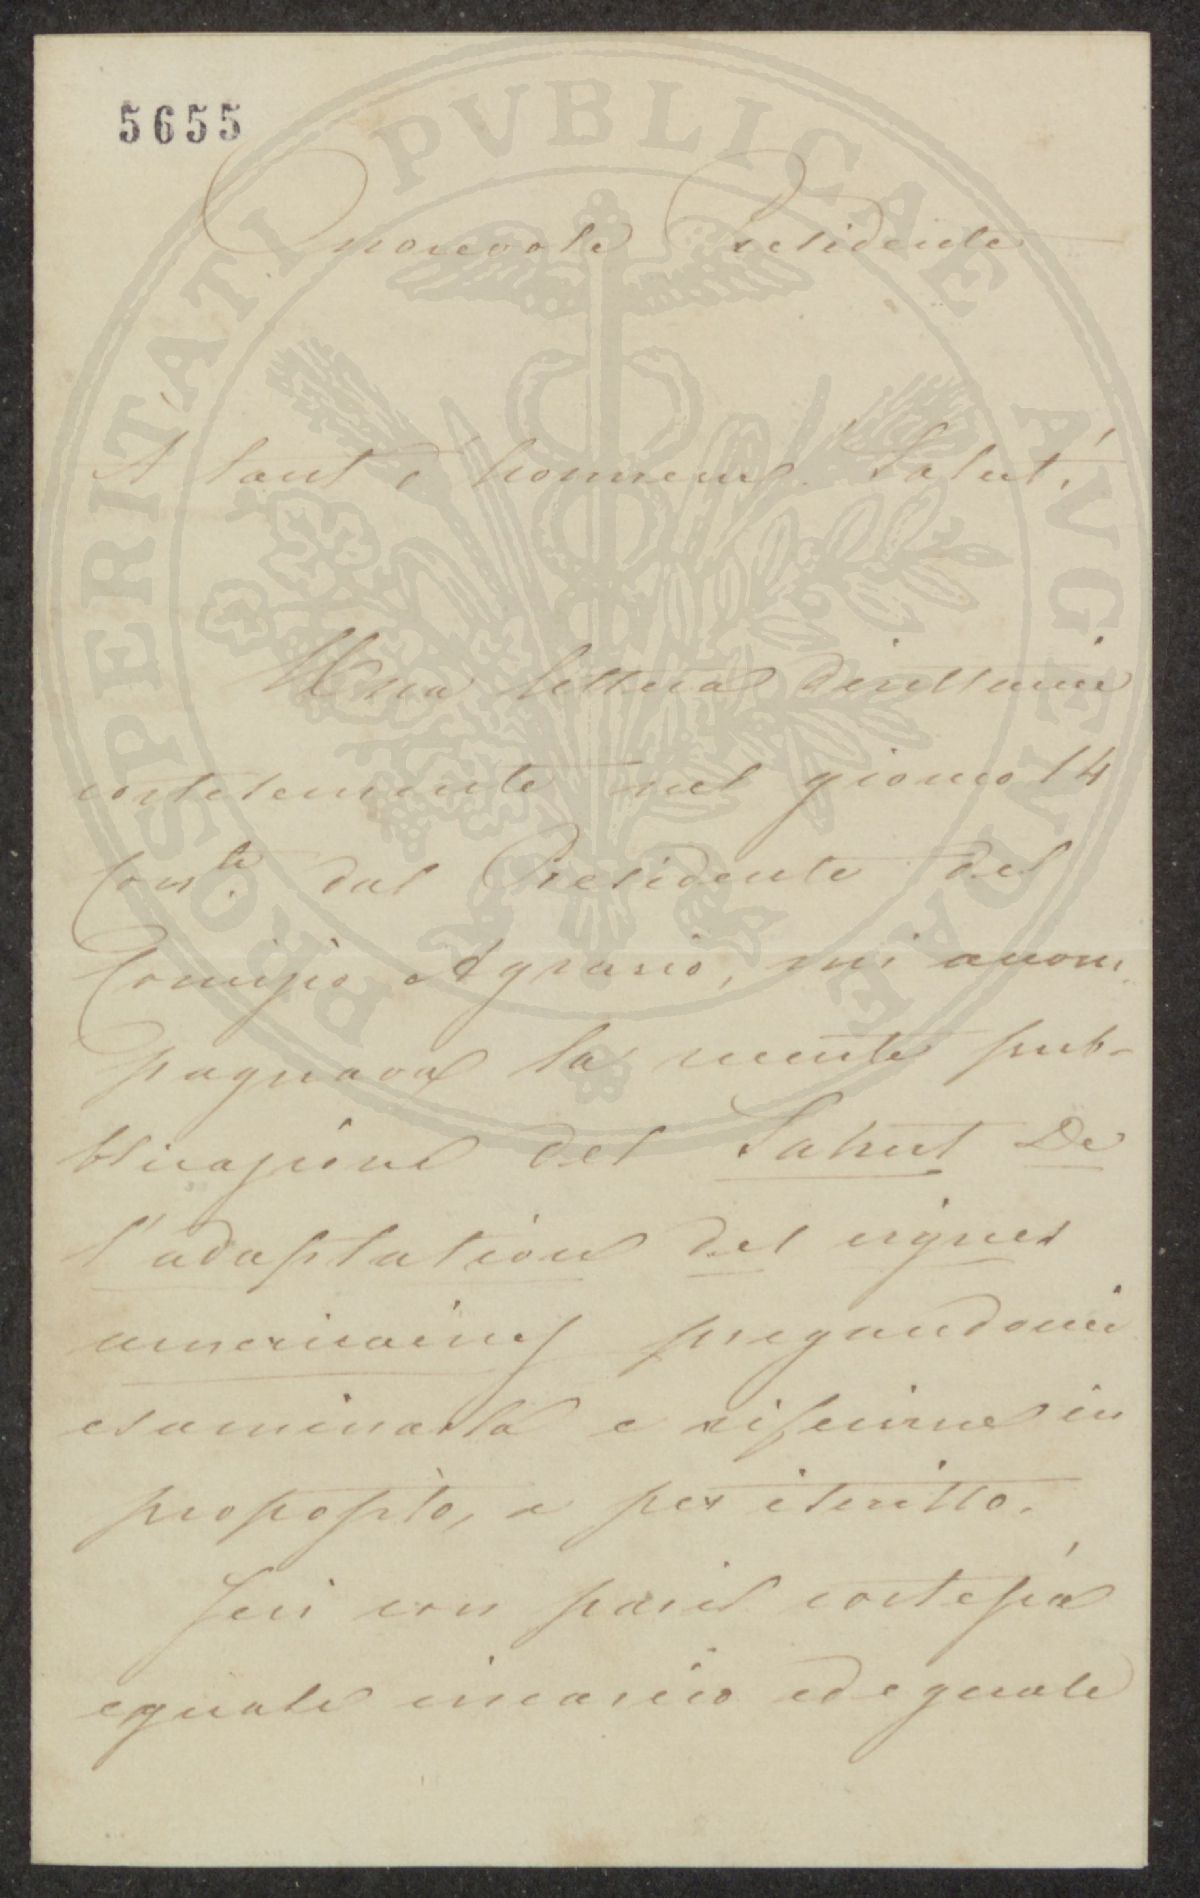 5655
PROSPERITATI PVBLICAE AVGENDAE
Onorevole Presidente
A tant d'honneur Salut!
Una lettera direttami
cortesemente nel giorno 14
Corr.te dal Presidente del
Comizio Agrario, mi accom
pagnava la recente pub-
blicazione del Sahut De
l'adaptation des vignes
americaines pregandomi
esaminarla e riferirne in
proposito, a per iscritto.
Jeri con pari cortesia
eguale incarico ed eguale